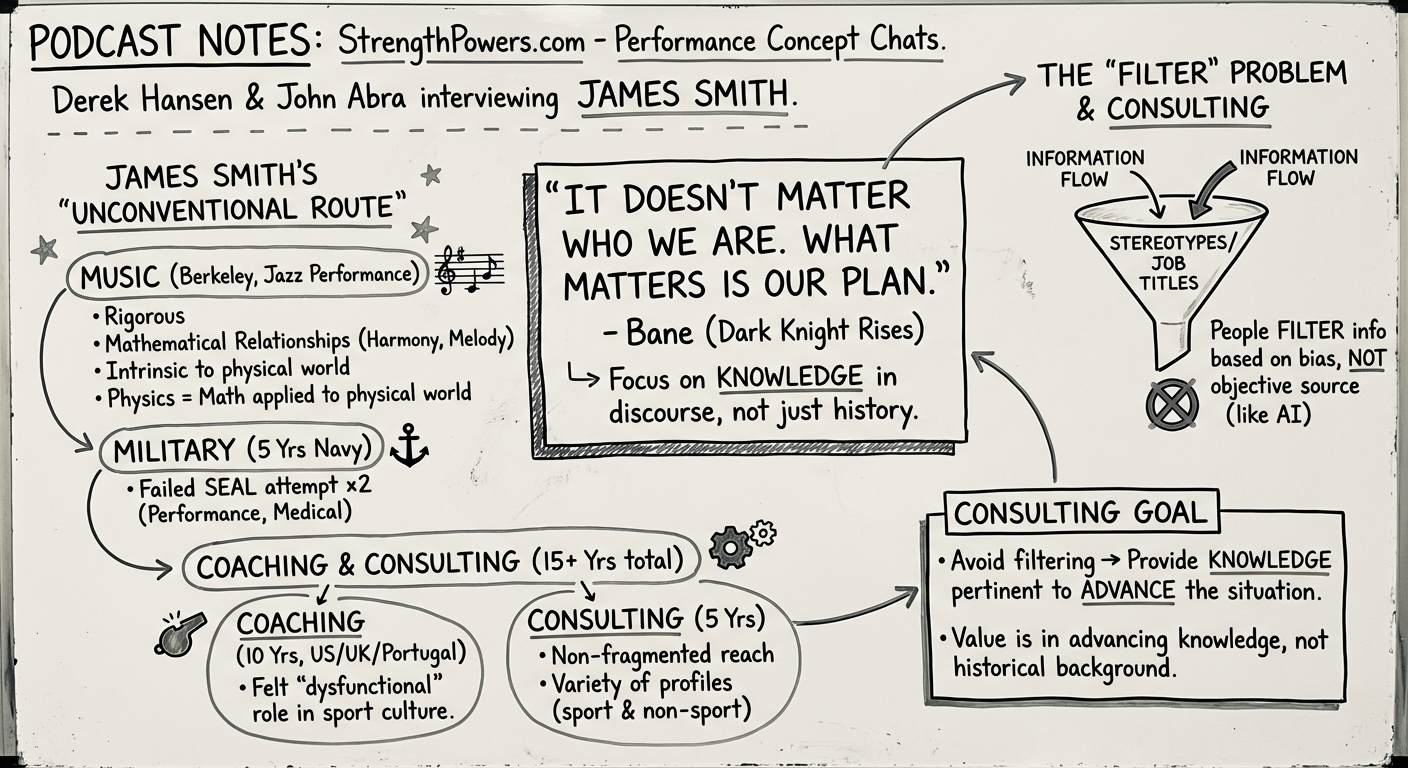 PODCAST NOTES: StrengthPowers.com – Performance Concept Chats.
Derek Hansen & John Abra interviewing JAMES SMITH.
JAMES SMITH'S
"UNCONVENTIONAL ROUTE"
MUSIC (Berkeley, Jazz Performance)
• Rigorous
• Mathematical Relationships (Harmony, Melody)
• Intrinsic to physical world
• Physics = Math applied to physical world
MILITARY (5 Yrs Navy)
• Failed SEAL attempt x2
(Performance, Medical)
COACHING & CONSULTING (15+ Yrs total)
COACHING
(10 Yrs, US/UK/Portugal)
• Felt "dysfunctional"
role in sport culture.
CONSULTING (5 Yrs)
• Non-fragmented reach
• Variety of profiles
(sport & non-sport)
"IT DOESN'T MATTER
WHO WE ARE. WHAT
MATTERS IS OUR PLAN."
– Bane (Dark Knight Rises)
↳ Focus on KNOWLEDGE in
discourse, not just history.
THE "FILTER" PROBLEM
& CONSULTING
INFORMATION
FLOW
INFORMATION
FLOW
STEREOTYPES/
JOB
TITLES
People FILTER info
based on bias, NOT
objective source
(like AI)
CONSULTING GOAL
• Avoid filtering → Provide KNOWLEDGE
pertinent to ADVANCE the situation.
• Value is in advancing knowledge, not
historical background.